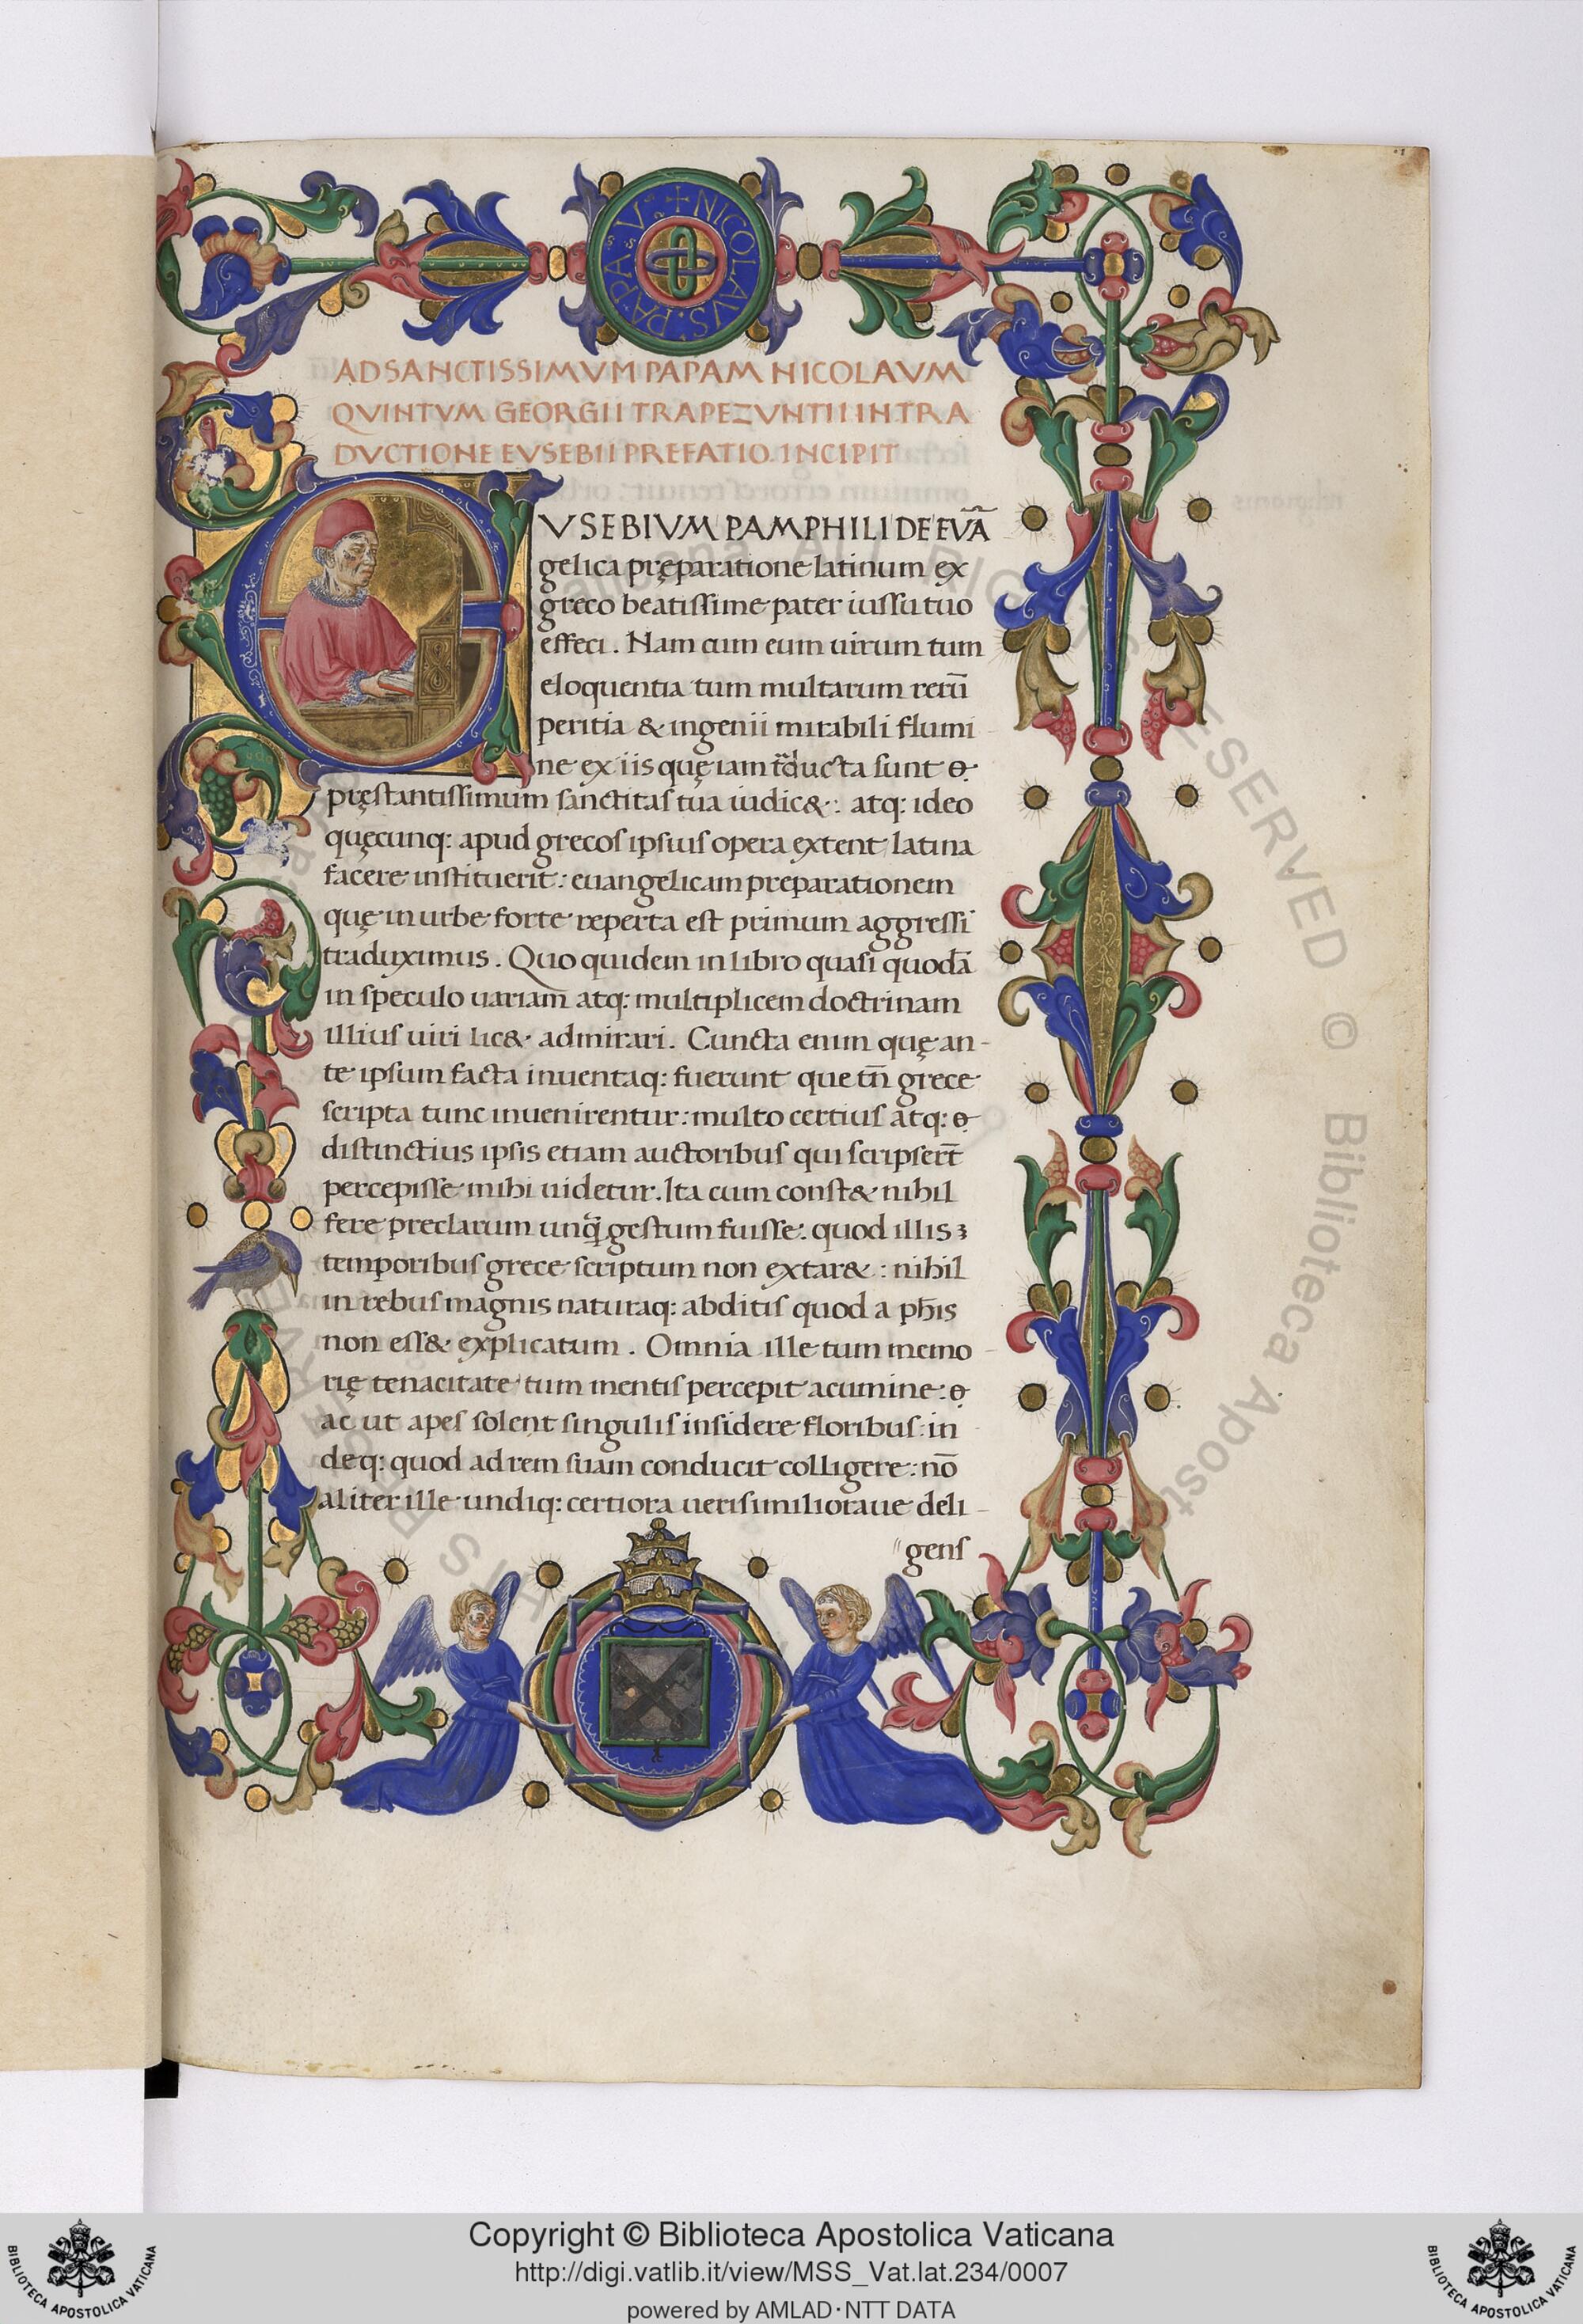 + NICOLAVS · PAPA · V ·
AD SANCTISSIMVM PAPAM NICOLAVM
QVINTVM GEORGII TRAPEZVNTII IN TRA
DVCTIONE EVSEBII PREFATIO. INCIPIT
EVSEBIVM PAMPHILI DE EVĀ
gelica pręparatione latinum ex
greco beatissime pater iussu tuo
effeci. Nam cum eum uirum tum
eloquentia tum multarum rerū
peritia & ingenii mirabili flumi
ne ex iis quę iam
pręstantissimum sanctitas tua iudic&: atq: ideo
quęcunq: apud grecos ipsius opera extent latina
facere instituerit: euangelicam preparationem
quę in urbe forte reperta est primum aggressi
traduximus. Quo quidem in libro quasi quodā
in speculo uariam atq: multiplicem doctrinam
illius uiri lic& admirari. Cuncta enim quę an-
te ipsum facta inuentaq: fuerunt que tn̄ grece
scripta tunc inuenirentur: multo certius atq:
distinctius ipsis etiam auctoribus qui scripser̄t
percepisse mihi uidetur. Ita cum const& nihil
fere preclarum unq̄ gestum fuisse: quod illis
temporibus grece scriptum non extar&: nihil
in rebus magnis naturaq: abditis quod a ph̄is
non ess& explicatum. Omnia ille tum memo-
rię tenacitate tum mentis percepit acumine:
ac ut apes solent singulis insidere floribus: in
deq: quod ad rem suam conducit colligere: nō
aliter ille undiq: certiora uerisimilioraue deli-
gens
Copyright © Biblioteca Apostolica Vaticana
http://digi.vatlib.it/view/MSS_Vat.lat.234/0007
powered by AMLAD·NTT DATA
BIBLIOTECA APOSTOLICA VATICANA
BIBLIOTECA APOSTOLICA VATICANA